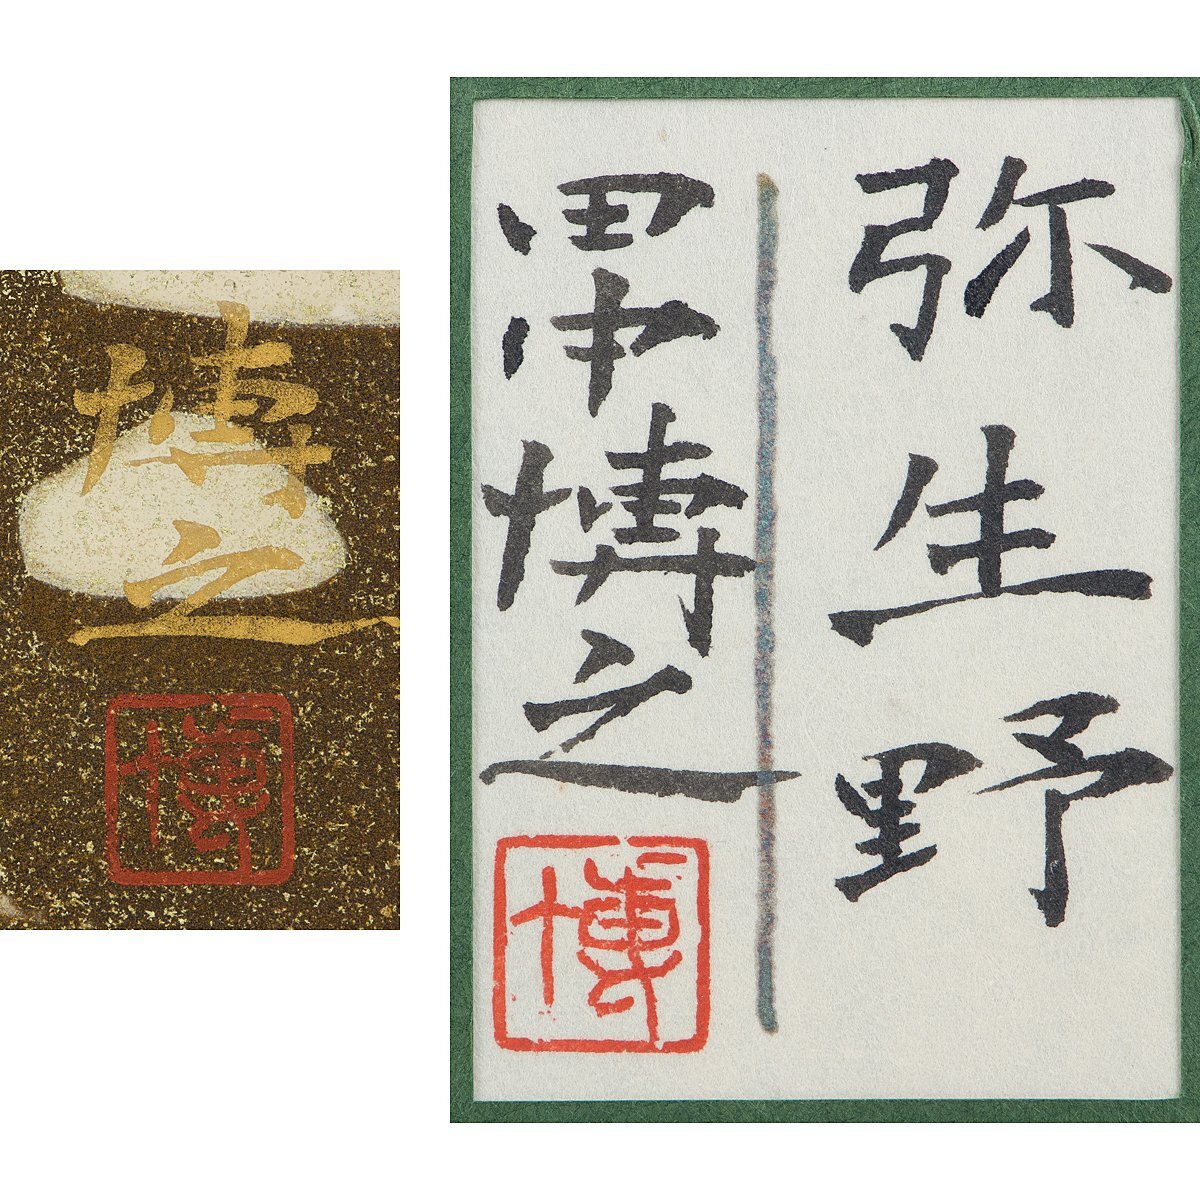 博之
博
弥生野
田中博之
博